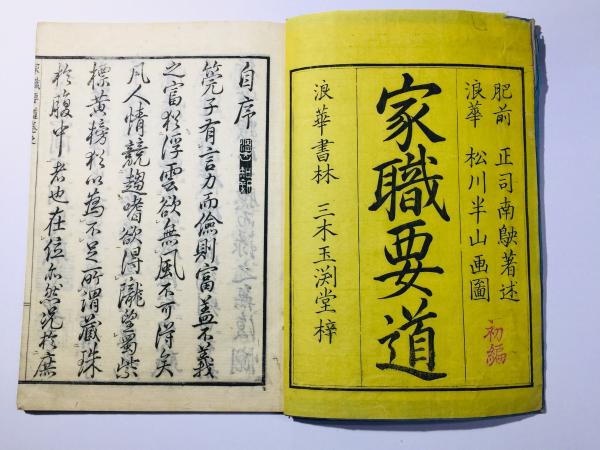 肥前 正司南鴃著述
浪華 松川半山画圖
初編
家職要道
浪華書林 三木玉渕堂梓
自序
筦子有言力而儉則富蓋不義
之富於浮雲欲無風不可得矣
凡人情競趨嗜欲得隴望蜀紫
標黄榜於以為不足所謂藏珠
於腹中者也在位亦然况於庶